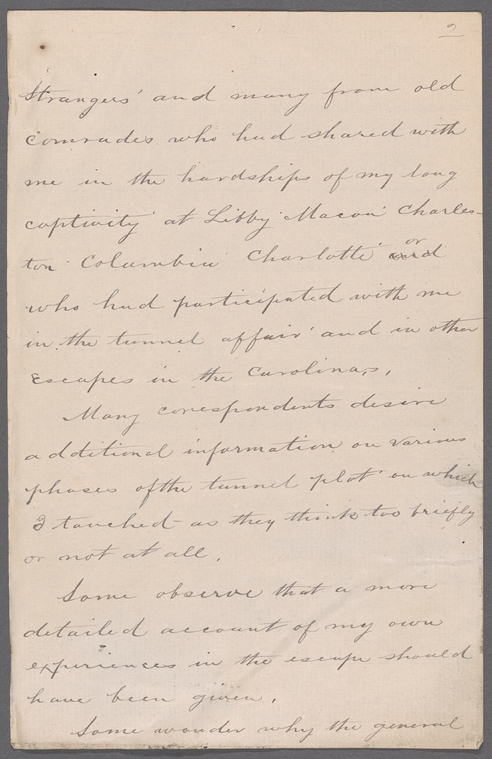 2
strangers' and many from old
comrades who had shared with
me in the hardships of my long
captivity at Libby Macon Charles-
ton Columbia Charlotte or
who had participated with me
in the tunnel affair and in other
escapes in the Carolinas.
Many corespondents desire
additional information on various
phases of the tunnel plot on which
I touched as they think too briefly
or not at all.
Some observe that a more
detailed account of my own
experiences in the escape should
have been given.
Some wonder why the general